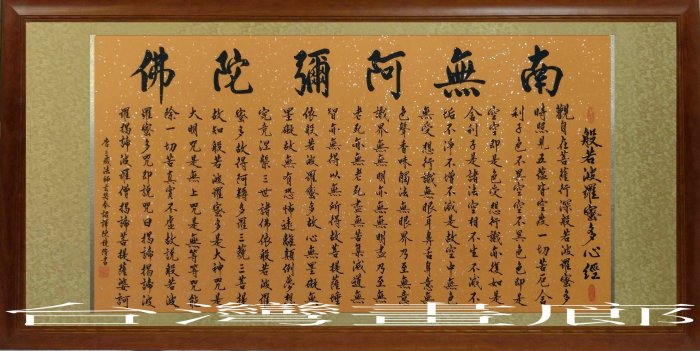 南無阿彌陀佛
般若波羅蜜多心經
觀自在菩薩行深般若波羅蜜多
時照見五蘊皆空度一切苦厄舍
利子色不異空空不異色色即是
空空即是色受想行識亦復如是
舍利子是諸法空相不生不滅不
垢不淨不增不減是故空中無色
無受想行識無眼耳鼻舌身意無
色聲香味觸法無眼界乃至無意
識界無無明亦無無明盡乃至無
老死亦無老死盡無苦集滅道無
智亦無得以無所得故菩提薩埵
依般若波羅蜜多故心無罣礙無
罣礙故無有恐怖遠離顛倒夢想
究竟涅槃三世諸佛依般若波羅
蜜多故得阿耨多羅三藐三菩提
故知般若波羅蜜多是大神咒是
大明咒是無上咒是無等等咒能
除一切苦真實不虛故說般若波
羅蜜多咒即說咒曰揭諦揭諦波
羅揭諦波羅僧揭諦菩提薩婆訶
唐三藏法師玄奘奉詔譯陳
台灣畫廊